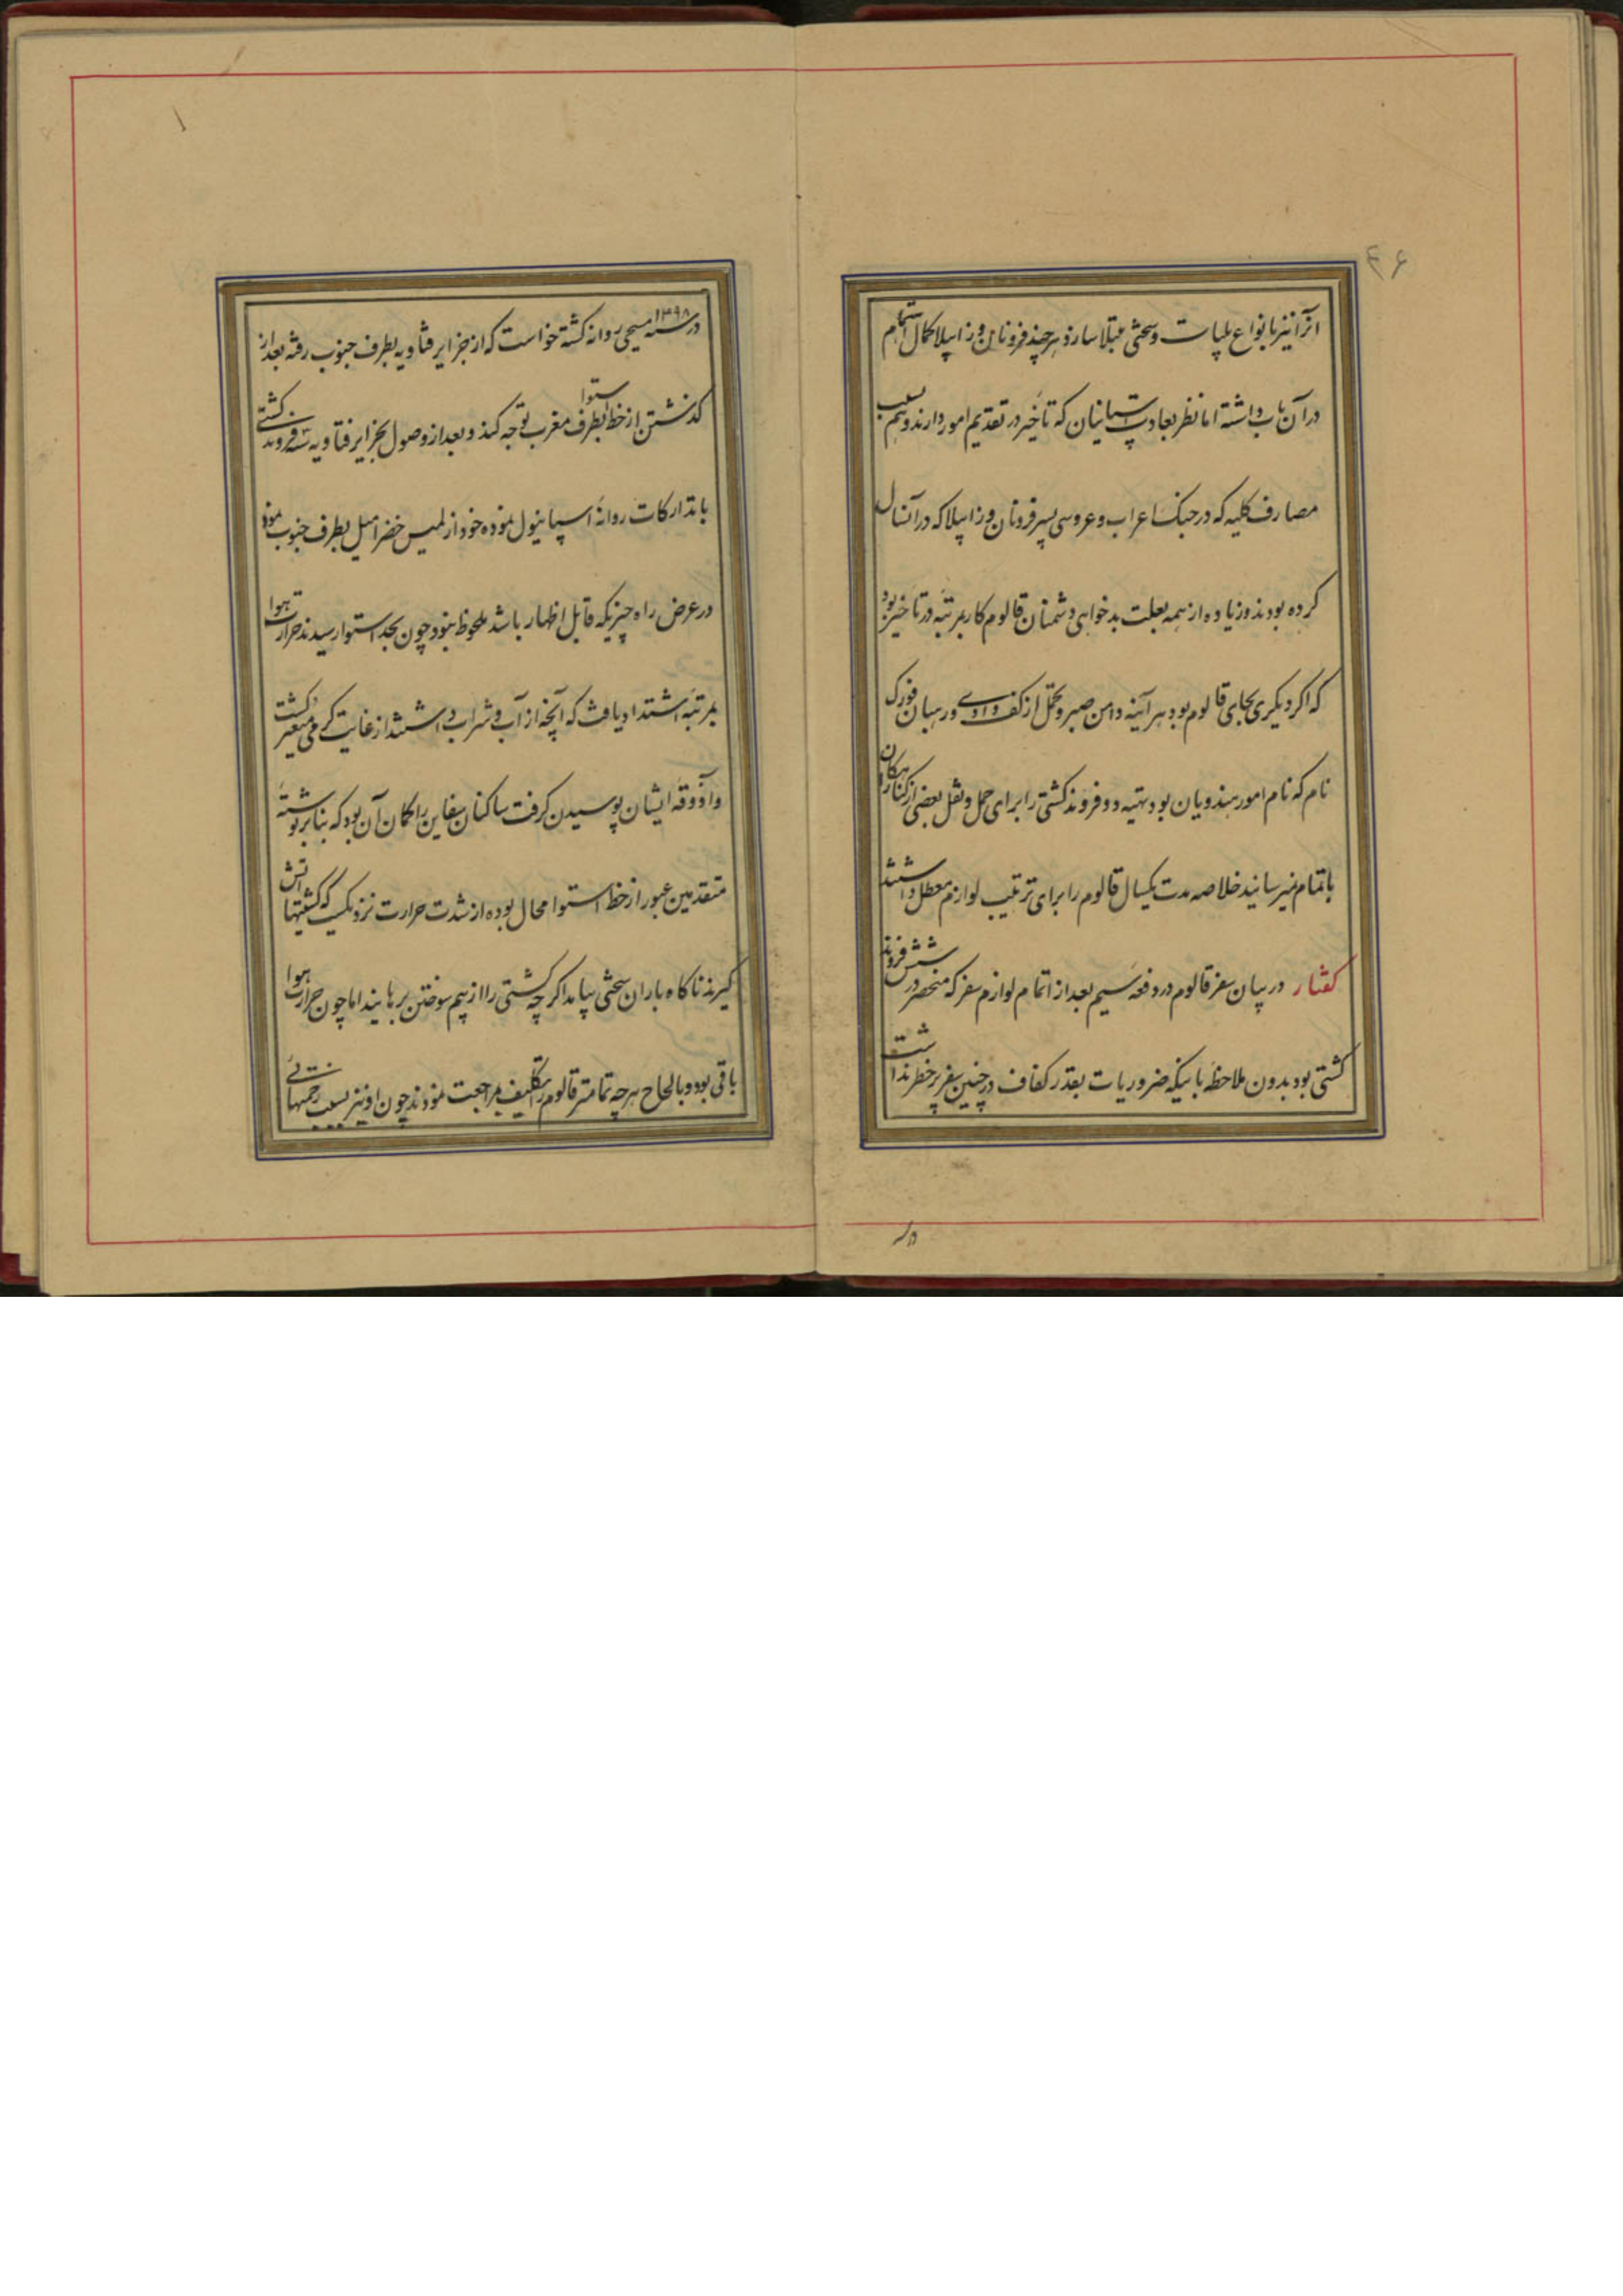 انرا نیز بانواع بلیات و سختی مبتلا سازد هر چند فرونان و زابیلا کمال اهتمام
در آن باب داشته اما نظر بعادت اسپانیان که تأخیر در تقدیم امور دارند و هم بسبب
مصارف کلیه که در جنک اعراب و عروسی پسر فرونان و زابیلا که در آنسال
کرده بودند و زیاده از همه بعلت بدخواهی دشمنان قالوم کار بمرتبه در تاخیر بود
که اکر دیکری بجای قالوم بود هر آینه دامن صبر و تحمل از کف دادی و رهبان فورک
نام که نام امور هندویان بود تهیه دو فروند کشتی را برای حمل و نقل بعضی از کناهکاران
باتمام نمیرسانید خلاصه مدت یکسال قالوم را برای ترتیب لوازم معطل داشتند
کفتار در بیان سفر قالوم در دفعه سیم بعد از اتمام لوازم سفر که منحصر در شش فروند
کشتی بود بدون ملاحظه باینکه ضروریات بقدر کفاف در چنین سفر پر خطر نداشت
در سنه ۱۴۹۸ مسیحی روانه کشته خواست که از جزایر قناویه بطرف جنوب رفته بعد از
کذشتن از خط استوا بطرف مغرب توجه کند و بعد از وصول بجزایر قناویه سه فروند کشتی
با تدارکات روانهٔ اسپانیول نموده خود از لمیس خضرا میل بطرف جنوب نمود
در عرض راه چیزیکه قابل اظهار باشد ملحوظ نبود چون بحد استوا رسیدند حرارت هوا
بمرتبه اشتداد یافت که آنچه از آب و شراب داشتند از غایت کرمی متغیر کشت
و آذوقه ایشان پوسیدن کرفت ساکنان سفاین را کمان آن بود که بنا بر نوشتهٔ
متقدمین عبور از خط استوا محال بوده از شدت حرارت نزدیکست که کشتیها آتش
کیرند ناکاه باران سختی بیامد اکر چه کشتی را از بیم سوختن برهانید اما چون حرارت هوا
باقی بود و بالحاح هر چه تمامتر قالوم را تکلیف مراجعت نمودند چون او نیز بسبب زحمتهای
در سنه